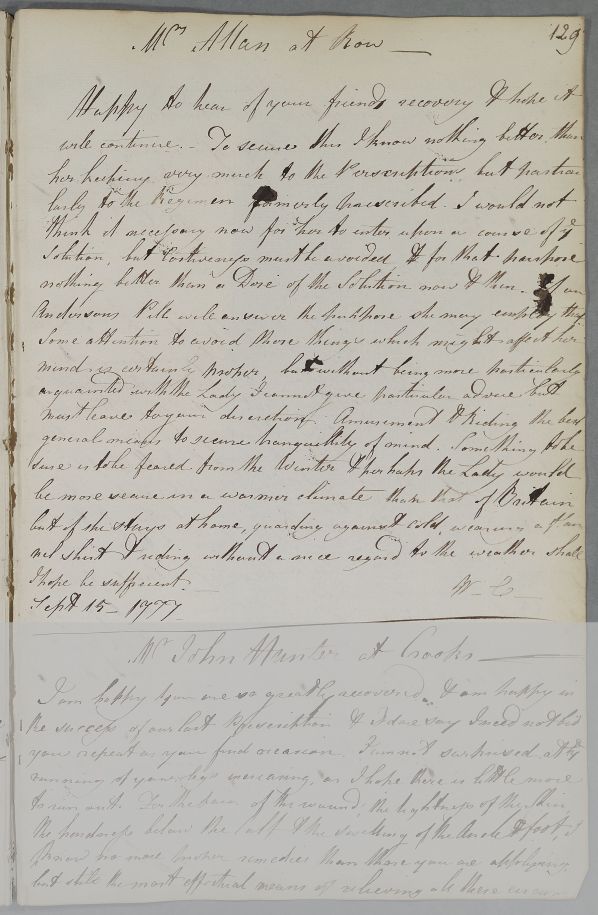 Mrs Allan at Row
129
Happy to hear of your friends recovery & hope it
will continue. - To secure this I know nothing better than
her keeping very much to the Perscription but particu
larly to the Regimen formerly prescribed. I would not
think it necessary now for her to enter upon a course of ye
Solution, but Costiveness must be avoided & for that purpose
nothing better than a Dose of the Solution now & then. If an
Andersons Pill will answer the purpose she may employ that
Some attention to avoid those things which might affect her
mind is certainly proper, but without being more particularly
acquainted with the Lady I cannot give particular advice but
must leave to your discretion. Amusement & Riding the best
general means to secure tranquillity of mind. Something to be
sure is to be feared from the Winter & perhaps the Lady would
be more secure in a warmer climate than that of Britain
but if she stays at home, guarding against cold, wearing a flan
nel shirt & riding without a nice regard to the weather shall
I hope be sufficient.
W. C.
Sept 15 - 1777
Mr John Hunter at Crooks
I am happy you are so greatly recovered, & am happy in
the success of our last Prescription & I dare say I need not bid
you repeat as your find occasion. I am not surprised at the
running of your legs increasing, as I hope there is little more
to run out. For the pain of the wound, the tightness of the skin
the hardness below the calf & the swelling of the Ancle & foot I
know no more proper remedies than those you are applying,
but still the most effectual means of relieving all these